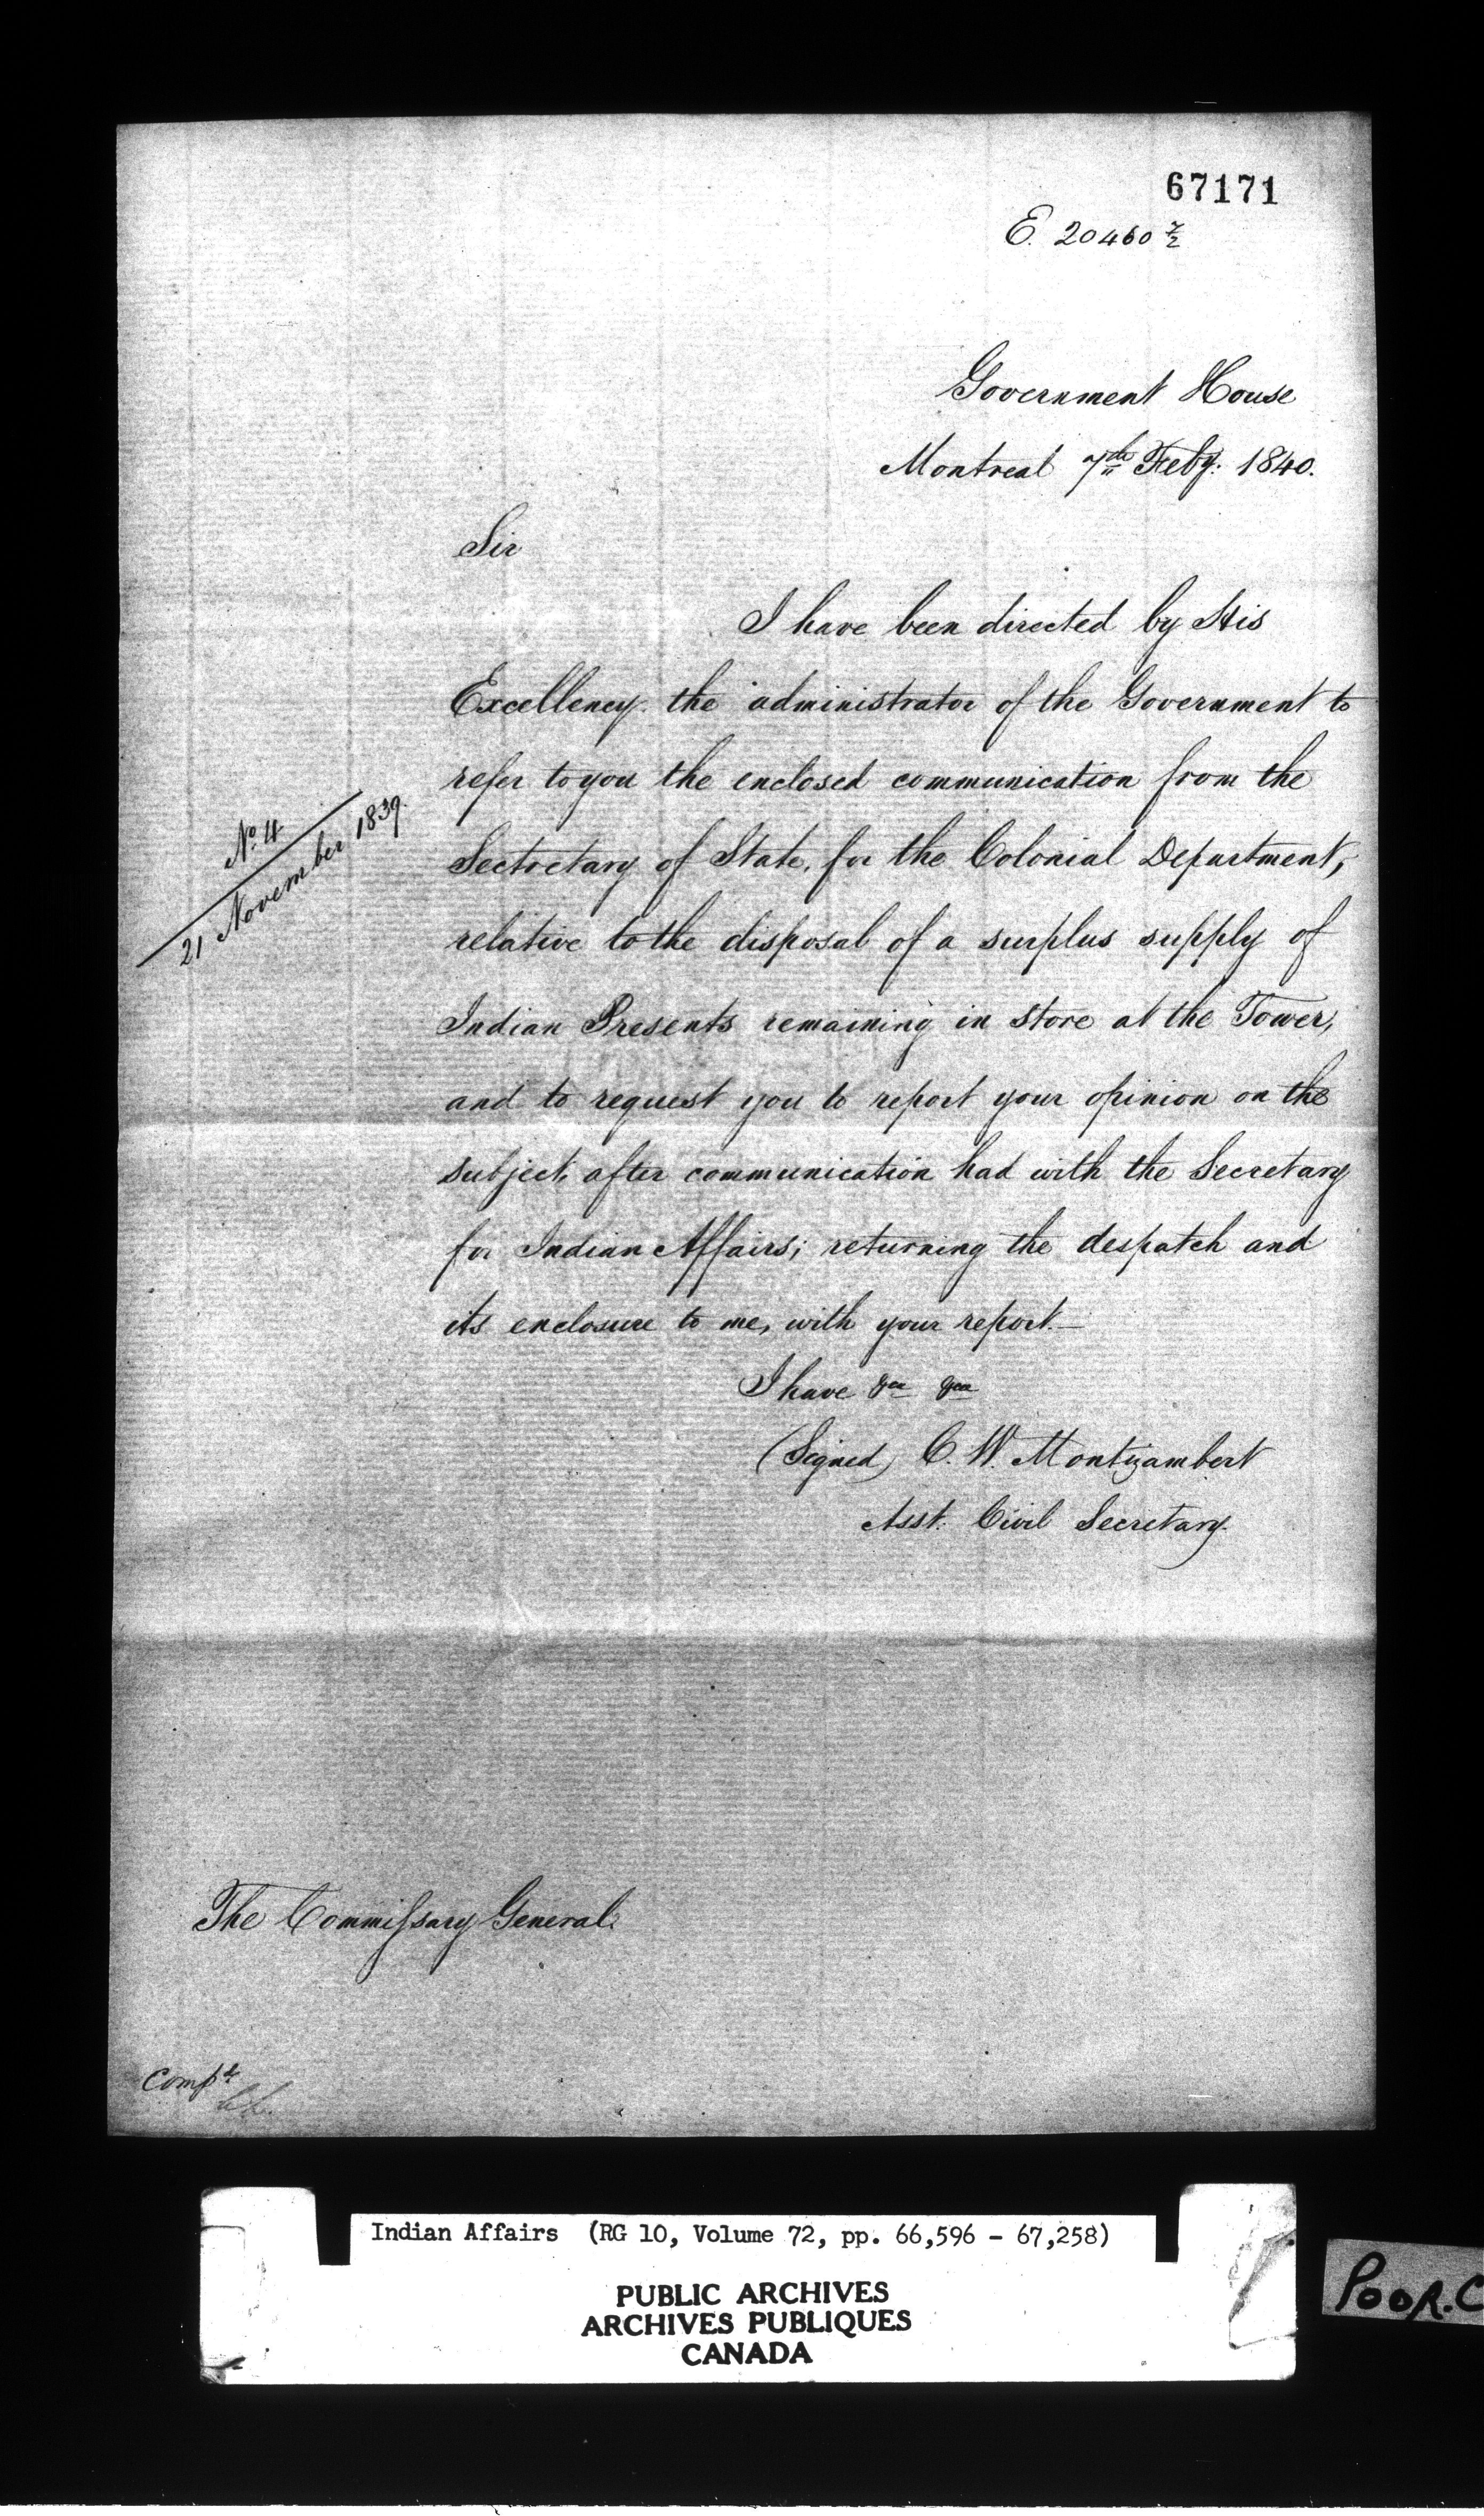 67171
E. 20460 2/2
Government House
Montreal 7th Feby: 1840.
Sir
I have been directed by His
Excellency the administrator of the Government to
refer to you the enclosed communication from the
No. 4
21 November 1839.
Sectretary of State, for the Colonial Department,
relative to the disposal of a surplus supply of
Indian Presents remaining in store at the Tower,
and to request you to report your opinion on the
subject, after communication had with the Secretary
for Indian Affairs; returning the despatch and
its enclosure to me, with your report.—
I have &ca &ca
(Signed) C. W. Montizambert
Asst. Civil Secretary.
The Commissary General
Compd.
Indian Affairs (RG 10, Volume 72, pp. 66,596 - 67,258)
PUBLIC ARCHIVES
ARCHIVES PUBLIQUES
CANADA
POOR. C